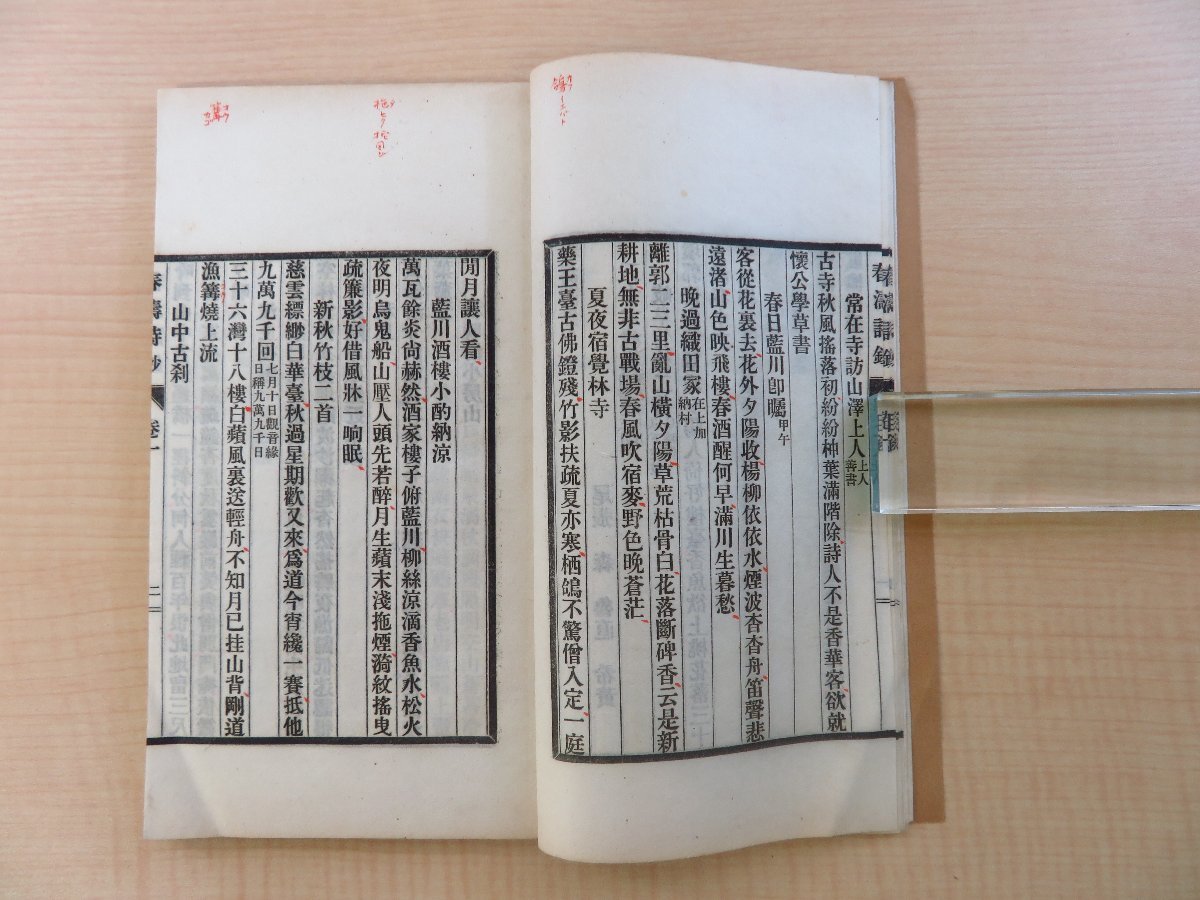 常在寺訪山澤上人 上人善書
古寺秋風搖落初紛紛柿葉滿階除詩人不是香華客欲就
懷公學草書
春日藍川卽矚 甲午
客從花裏去花外夕陽收楊柳依依水煙波杳杳舟笛聲悲
遠渚山色映飛樓春酒醒何早滿川生暮愁
晩過織田冢 在上加納村
離郭二三里亂山橫夕陽草荒枯骨白花落斷碑香云是新
耕地無非古戰場春風吹宿麥野色晩蒼茫
夏夜宿覺林寺
藥王臺古佛鐙殘竹影扶疏夏亦寒栖鴿不驚僧入定一庭
閒月讓人看
藍川酒樓小酌納涼
萬瓦餘炎尙赫然酒家樓子俯藍川柳絲涼滴香魚水松火
夜明烏鬼船山壓人頭先若醉月生蘋末淺拖煙漪紋搖曳
疏簾影好借風牀一晌眠
新秋竹枝二首
慈雲縹緲白華臺秋過星期歡又來爲道今宵纔一賽抵他
九萬九千回 七月十日觀音緣日稱九萬九千日
三十六灣十八樓白蘋風裏送輕舟不知月已挂山背剛道
漁篝燒上流
山中古刹
春濤詩鈔 卷一 二